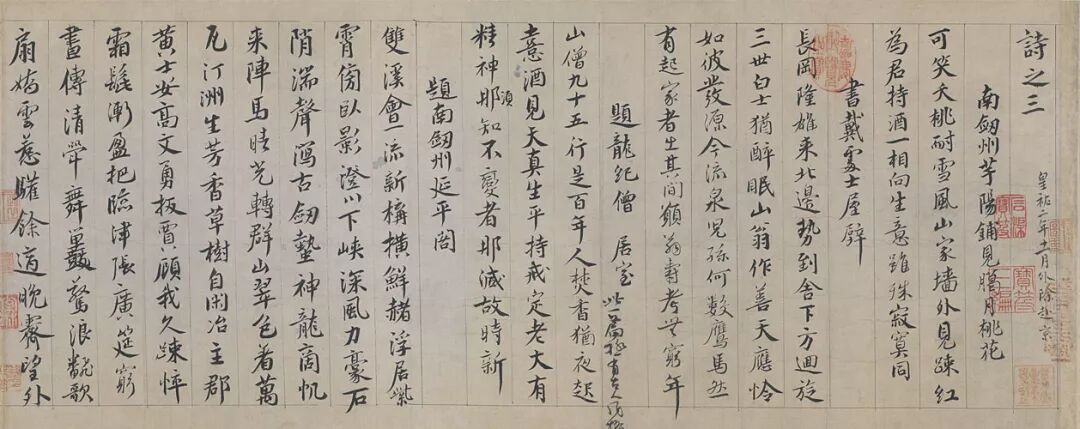 詩之三
皇祐二年十一月外除赴京
南劔州芋陽鋪見臘月桃花
可笑夭桃耐雪風山家墻外見踈紅
為君持酒一相向生意雖殊寂寞同
書戴處士屋壁
長岡隆雄来北邊勢到舍下方迴旋
三世白士猶醉眠山翁作善天應憐
如彼發源今流泉兒孫何數鷹馬然
有起家者生其間願翁壽考無窮年
題龍紀僧居室
此一篇極有古人風格
山僧九十五行是百年人焚香猶夜起
憙酒見天真生平持戒定老大有
精神須
耶知不變者那減故時新
題南劔州延平閣
雙溪會一流新構橫鮮赭浮居紫
霄傍卧影澄川下峽深風力豪石
陗湍聲瀉古劔蟄神龍商帆
来陣馬晴光轉群山翠色着萬
瓦汀洲生芳香草樹自閑冶主郡
黃士安高文勇扳賈顧我久踈悴
霜髭漸盈把臨津張廣筵窮
晝傳清斝舞鼉驚浪翻歌
扇嬌雲惹驩餘適晚霽望外